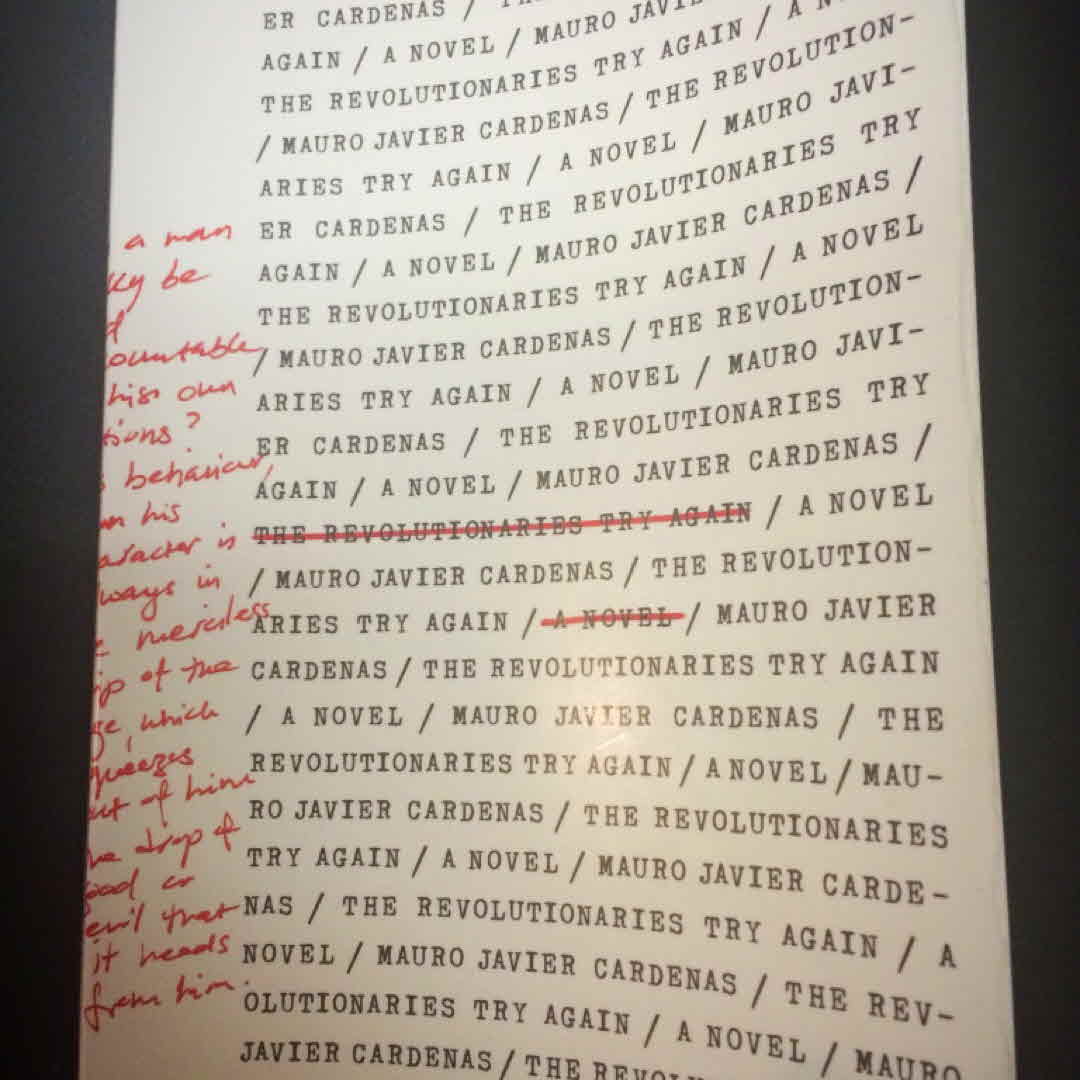 ER CARDENAS /
AGAIN / A NOVEL / MAURO JAVI-
THE REVOLUTIONARIES TRY AGAIN / A
/ MAURO JAVIER CARDENAS / THE REVOLUTION-
ARIES TRY AGAIN / A NOVEL / MAURO JAVI-
ER CARDENAS / THE REVOLUTIONARIES TRY
AGAIN / A NOVEL / MAURO JAVIER CARDENAS /
THE REVOLUTIONARIES TRY AGAIN / A NOVEL
/ MAURO JAVIER CARDENAS / THE REVOLUTION-
ARIES TRY AGAIN / A NOVEL / MAURO JAVI-
ER CARDENAS / THE REVOLUTIONARIES TRY
AGAIN / A NOVEL / MAURO JAVIER CARDENAS /
THE REVOLUTIONARIES TRY AGAIN / A NOVEL
/ MAURO JAVIER CARDENAS / THE REVOLUTION-
ARIES TRY AGAIN / A NOVEL / MAURO JAVIER
CARDENAS / THE REVOLUTIONARIES TRY AGAIN
/ A NOVEL / MAURO JAVIER CARDENAS / THE
REVOLUTIONARIES TRY AGAIN / A NOVEL / MAU-
RO JAVIER CARDENAS / THE REVOLUTIONARIES
TRY AGAIN / A NOVEL / MAURO JAVIER CARDE-
NAS / THE REVOLUTIONARIES TRY AGAIN / A
NOVEL / MAURO JAVIER CARDENAS / THE REV-
OLUTIONARIES TRY AGAIN / A NOVEL / MAURO
JAVIER CARDENAS / THE
a man
be
ountable
his own
tions?
behaviour,
his
aracter is
ways in
merciless
ip of the
ge, which
queezes
ut of him
drop of
ood or
evil that
it needs
from him.